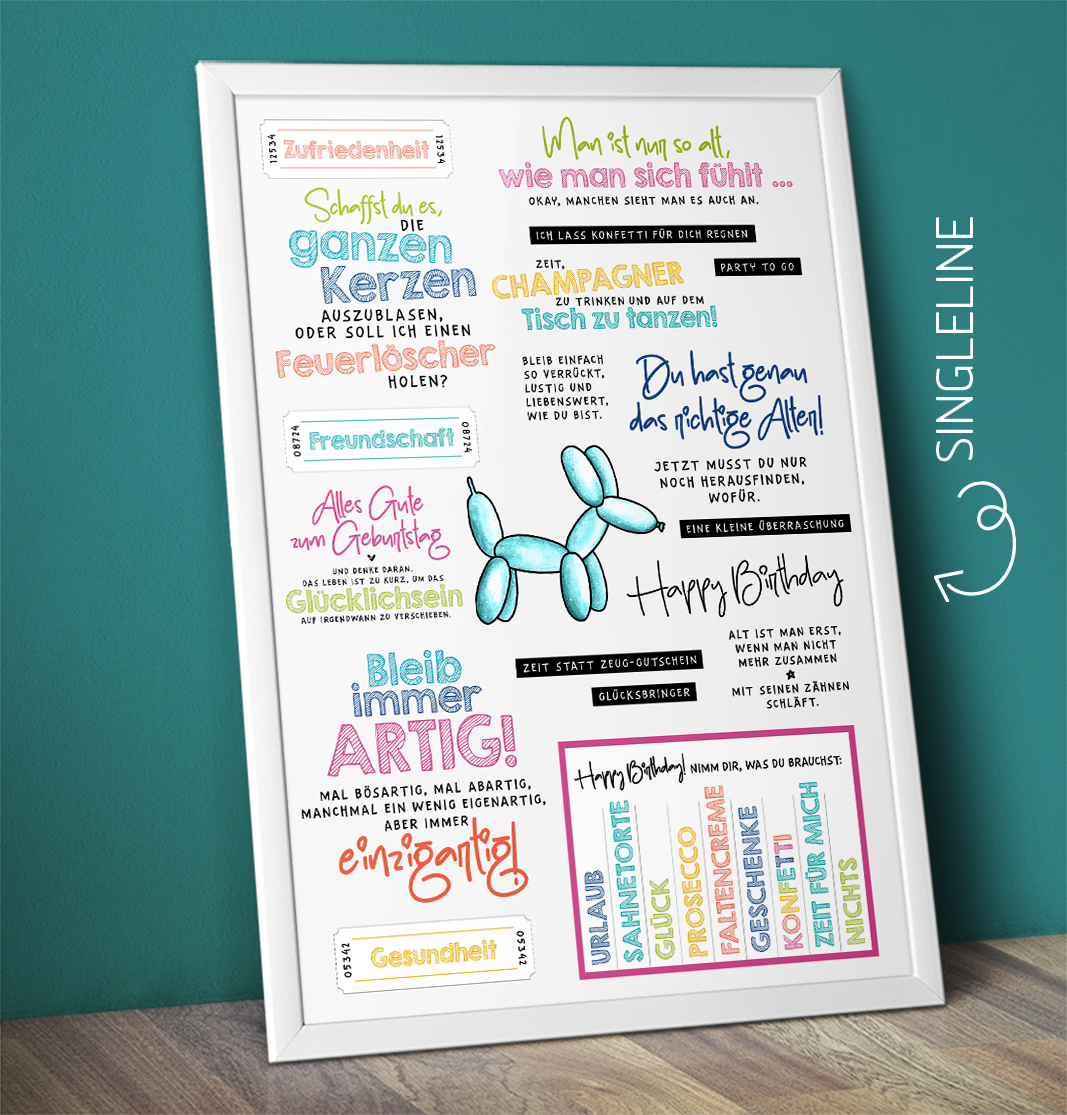 12534
Zufriedenheit
12534
Schaffst du es,
DIE
ganzen
Kerzen
AUSZUBLASEN,
ODER SOLL ICH EINEN
Feuerlöscher
HOLEN?
08724
Freundschaft
08724
Alles Gute
zum Geburtstag
UND DENKE DARAN,
DAS LEBEN IST ZU KURZ, UM DAS
Glücklichsein
AUF IRGENDWANN ZU VERSCHIEBEN.
Bleib
immer
ARTIG!
MAL BÖSARTIG, MAL ABARTIG,
MANCHMAL EIN WENIG EIGENARTIG,
ABER IMMER
einzigartig!
05342
Gesundheit
05342
Man ist nur so alt,
wie man sich fühlt ...
OKAY, MANCHEN SIEHT MAN ES AUCH AN.
ICH LASS KONFETTI FÜR DICH REGNEN
ZEIT,
CHAMPAGNER
ZU TRINKEN UND AUF DEM
Tisch zu tanzen!
PARTY TO GO
BLEIB EINFACH
SO VERRÜCKT,
LUSTIG UND
LIEBENSWERT,
WIE DU BIST.
Du hast genau
das richtige Alter!
JETZT MUSST DU NUR
NOCH HERAUSFINDEN,
WOFÜR.
EINE KLEINE ÜBERRASCHUNG
Happy Birthday
ZEIT STATT ZEUG-GUTSCHEIN
GLÜCKSBRINGER
ALT IST MAN ERST,
WENN MAN NICHT
MEHR ZUSAMMEN
MIT SEINEN ZÄHNEN
SCHLÄFT.
Happy Birthday! NIMM DIR, WAS DU BRAUCHST:
URLAUB
SAHNETORTE
GLÜCK
PROSECCO
FALTENCREME
GESCHENKE
KONFETTI
ZEIT FÜR MICH
NICHTS
SINGLELINE